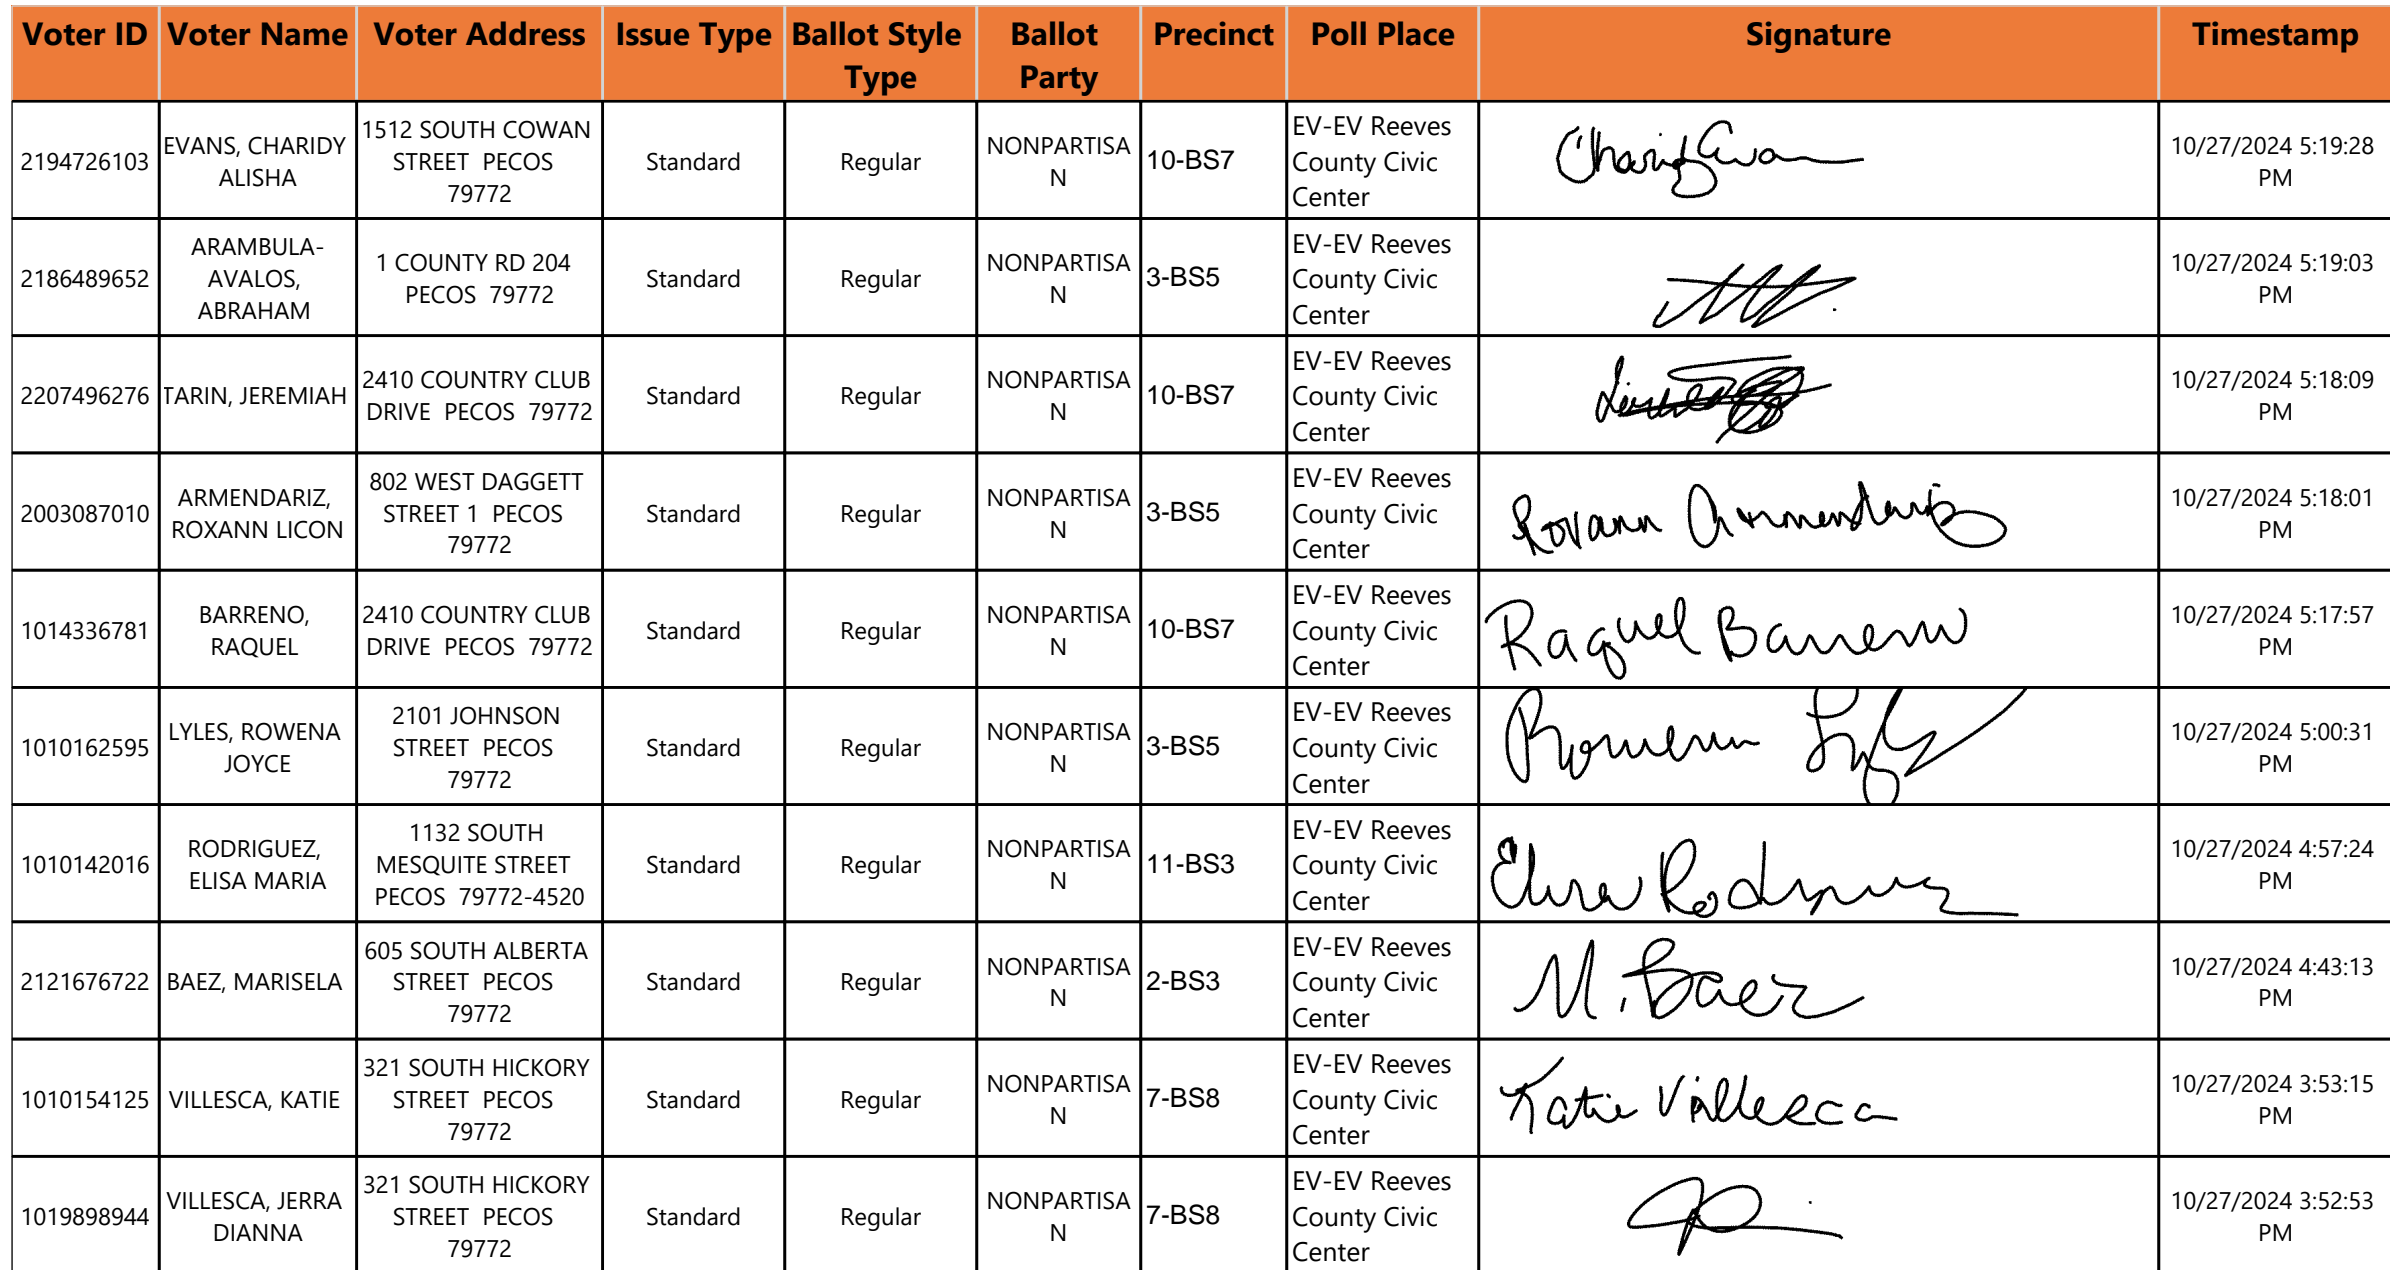 Voter ID Voter Name Voter Address Issue Type Ballot Style Type Ballot Party Precinct Poll Place Signature Timestamp
2194726103 EVANS, CHARIDY ALISHA 1512 SOUTH COWAN STREET PECOS 79772 Standard Regular NONPARTISAN 10-BS7 EV-EV Reeves County Civic Center Charidy Evan 10/27/2024 5:19:28 PM
2186489652 ARAMBULA-AVALOS, ABRAHAM 1 COUNTY RD 204 PECOS 79772 Standard Regular NONPARTISAN 3-BS5 EV-EV Reeves County Civic Center 10/27/2024 5:19:03 PM
2207496276 TARIN, JEREMIAH 2410 COUNTRY CLUB DRIVE PECOS 79772 Standard Regular NONPARTISAN 10-BS7 EV-EV Reeves County Civic Center 10/27/2024 5:18:09 PM
2003087010 ARMENDARIZ, ROXANN LICON 802 WEST DAGGETT STREET 1 PECOS 79772 Standard Regular NONPARTISAN 3-BS5 EV-EV Reeves County Civic Center Roxann Armendariz 10/27/2024 5:18:01 PM
1014336781 BARRENO, RAQUEL 2410 COUNTRY CLUB DRIVE PECOS 79772 Standard Regular NONPARTISAN 10-BS7 EV-EV Reeves County Civic Center Raquel Barreno 10/27/2024 5:17:57 PM
1010162595 LYLES, ROWENA JOYCE 2101 JOHNSON STREET PECOS 79772 Standard Regular NONPARTISAN 3-BS5 EV-EV Reeves County Civic Center Rowena Lyles 10/27/2024 5:00:31 PM
1010142016 RODRIGUEZ, ELISA MARIA 1132 SOUTH MESQUITE STREET PECOS 79772-4520 Standard Regular NONPARTISAN 11-BS3 EV-EV Reeves County Civic Center Elisa Rodriguez 10/27/2024 4:57:24 PM
2121676722 BAEZ, MARISELA 605 SOUTH ALBERTA STREET PECOS 79772 Standard Regular NONPARTISAN 2-BS3 EV-EV Reeves County Civic Center M. Baez 10/27/2024 4:43:13 PM
1010154125 VILLESCA, KATIE 321 SOUTH HICKORY STREET PECOS 79772 Standard Regular NONPARTISAN 7-BS8 EV-EV Reeves County Civic Center Katie Villesca 10/27/2024 3:53:15 PM
1019898944 VILLESCA, JERRA DIANNA 321 SOUTH HICKORY STREET PECOS 79772 Standard Regular NONPARTISAN 7-BS8 EV-EV Reeves County Civic Center 10/27/2024 3:52:53 PM